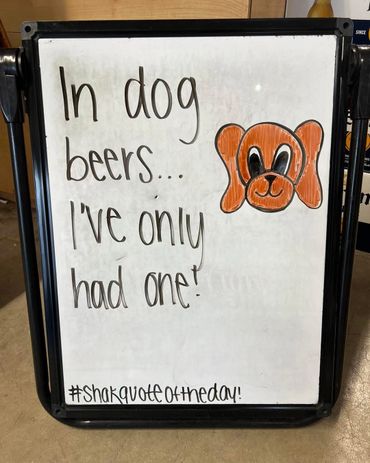 In dog
beers...
I've only
had one!
#shakquoteoftheday!
SINCE